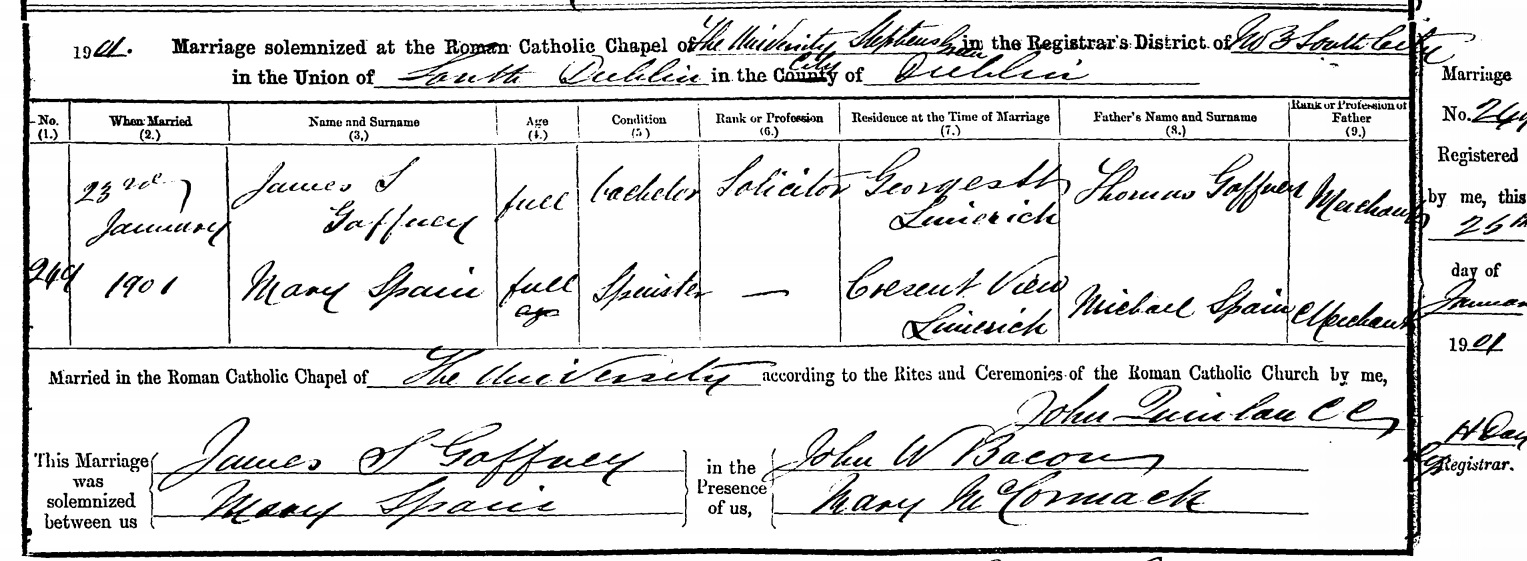 1901. Marriage solemnized at the Roman Catholic Chapel of The University Stephens Green in the Registrar's District of No 3 South City
in the Union of South Dublin in the County City of Dublin
No. (1.) When Married (2.) Name and Surname (3.) Age (4.) Condition (5.) Rank or Profession (6.) Residence at the Time of Marriage (7.) Father's Name and Surname (8.) Rank or Profession of Father (9.)
23rd James S full bachelor Solicitor Georges St Thomas Gaffney Merchant
January Gaffney Limerick
249 1901 Mary Spain full Spinster — Cresent View Michael Spain Merchant
age Limerick
Married in the Roman Catholic Chapel of The University according to the Rites and Ceremonies of the Roman Catholic Church by me,
John Quinlan C C
This Marriage was solemnized between us
James S Gaffney
Mary Spain
in the Presence of us,
John W Bacon
Mary McCormack
Marriage
No. 249
Registered
by me, this
25th
day of
January
1901
H Day
Registrar.